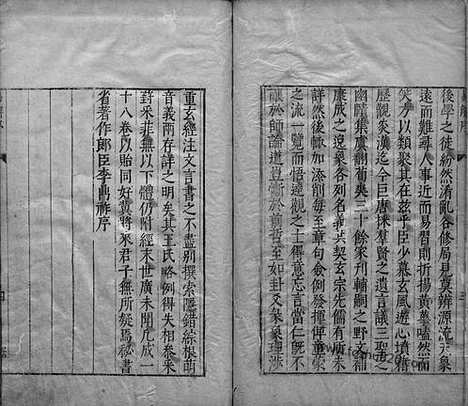 後學之徒紛然淆亂各修局見莫辨源流天象
遠而難尋人事近而易習則折揚黃葂嗑然而
笑方以類聚其在茲乎臣少慕玄風遊心墳籍
歷觀炎漢迄今巨唐採羣賢之遺言議三聖之
幽賾集虞翻荀爽三十餘家刋輔嗣之野文補
康成之逸象各列名義共契玄宗先儒有所未
詳然後輒加添削每至章句僉例發揮俾童蒙
之流一覽而悟達觀之士得意忘言當仁既不
讓於師論道豈慚於前哲至如卦爻象理涉
重玄經注文言書之不盡別撰索隱錯綜根萌
音義兩存詳之明矣其王氏略例得失相叅采
葑采菲無以下體仍附經末世廣未聞凡成一
十八卷以貽同好冀將來君子無所疑焉祕書
省著作郎臣李鼎祚序